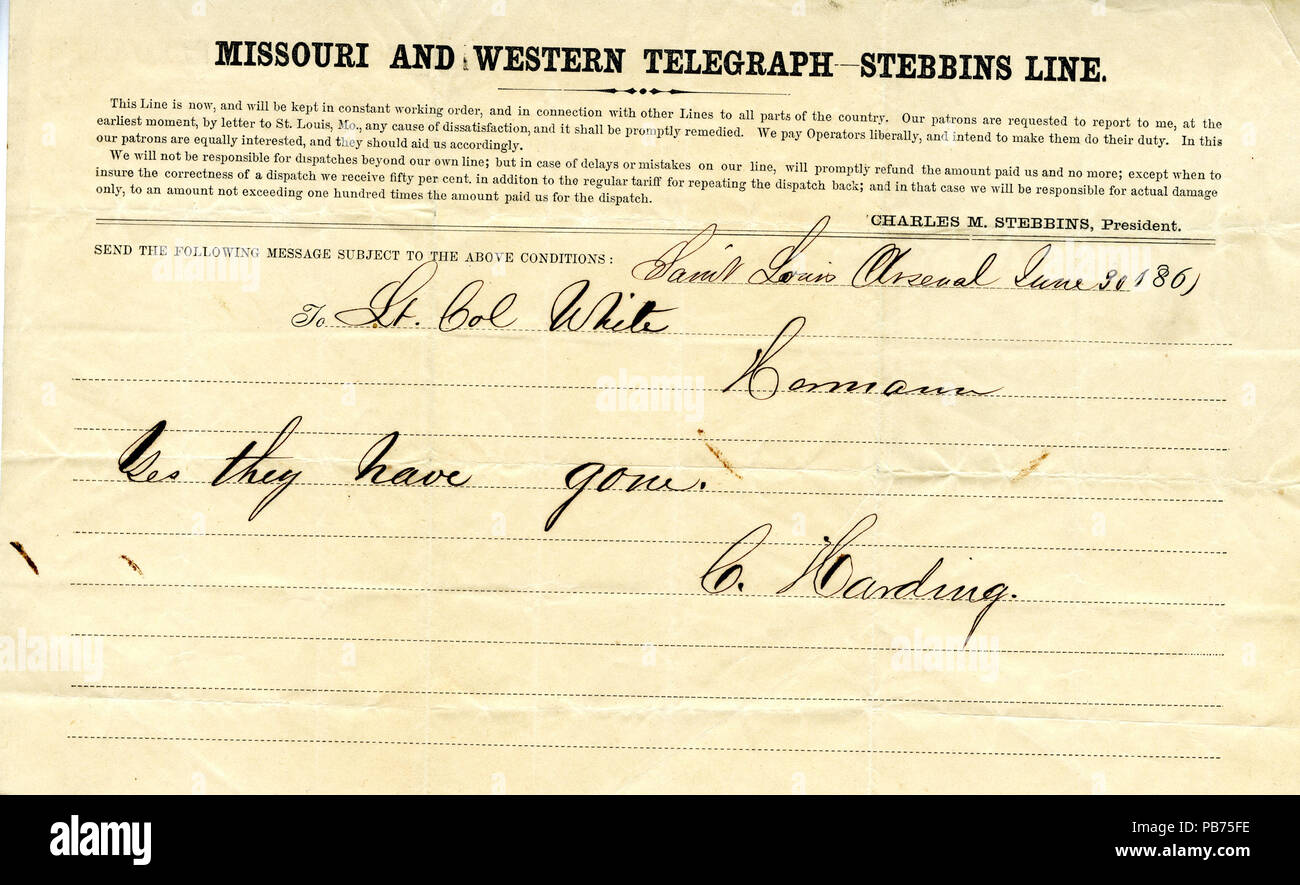 MISSOURI AND WESTERN TELEGRAPH—STEBBINS LINE.
This Line is now, and will be kept in constant working order, and in connection with other Lines to all parts of the country. Our patrons are requested to report to me, at the
earliest moment, by letter to St. Louis, Mo., any cause of dissatisfaction, and it shall be promptly remedied. We pay Operators liberally, and intend to make them do their duty. In this
our patrons are equally interested, and they should aid us accordingly.
We will not be responsible for dispatches beyond our own line; but in case of delays or mistakes on our line, will promptly refund the amount paid us and no more; except when to
insure the correctness of a dispatch we receive fifty per cent. in additon to the regular tariff for repeating the dispatch back; and in that case we will be responsible for actual damage
only, to an amount not exceeding one hundred times the amount paid us for the dispatch.
CHARLES M. STEBBINS, President.
SEND THE FOLLOWING MESSAGE SUBJECT TO THE ABOVE CONDITIONS:
Saint Louis Arsenal June 30 1861
To Lt. Col White
Hermann
Yes they have gone.
C. Harding.
alamy
Image ID: PB75FE
www.alamy.com